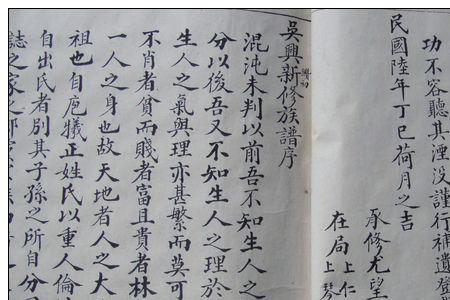 功不容聽其湮没謹行補遺登
民國陸年丁巳荷月之吉
承修尤望
在局上仁
上琴
吳興新修族譜序
混沌未判以前吾不知生人之
分以後吾又不知生人之理於
生人之氣與理亦甚繁而莫可
不肖者貧而賤者富且貴者林
一人之身也故天地者人之大
祖也自庖犧正姓氏以重人倫
自出氏者別其子孫之所自分
誌之家之